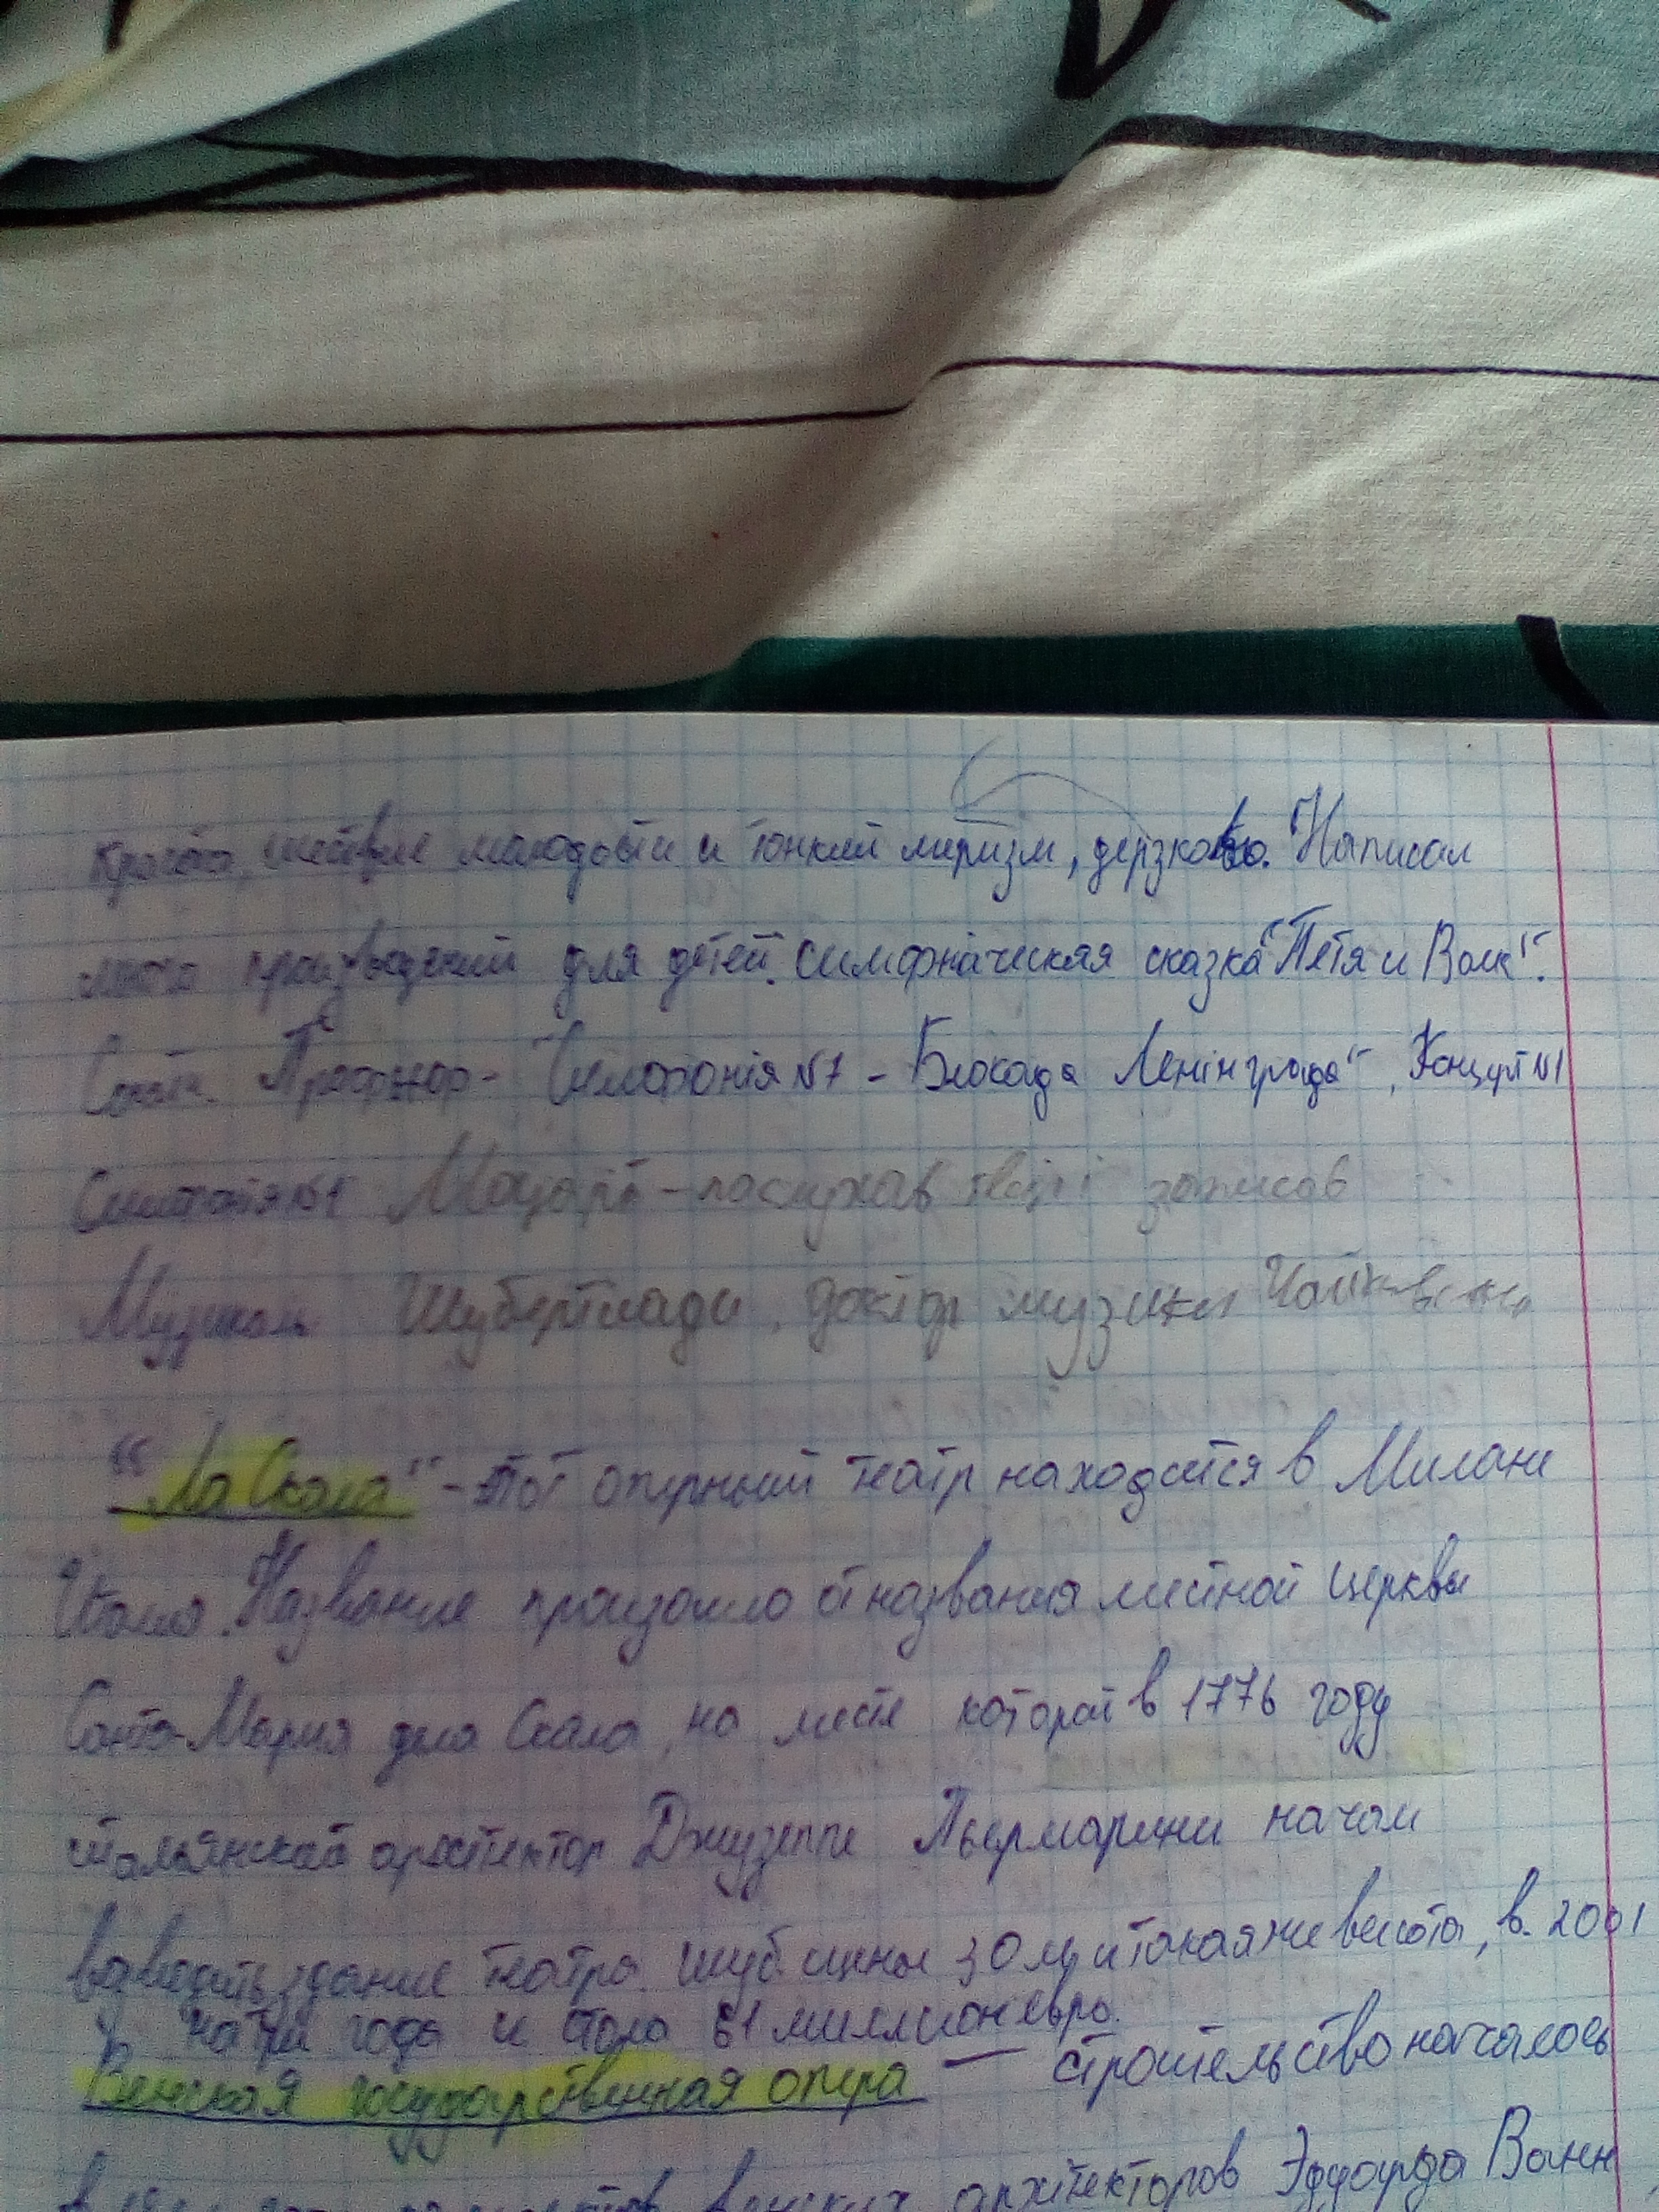 красота, шествие молодости и тонкий лиризм, дерзко. Написал
много произведений для детей. Симфоническая сказка "Петя и Волк".
"Симфонія №7 - Блокада Ленінграда", Концерт №1
Симфонія №1 Моцарт - послухав твірі записав
Шубертіади, доктор музики Чайковський
"Ла Скала" - этот оперный театр находится в Милане
Италия. Название произошло от названия местной церквы
Санта-Мария дела Скала, на месте которой в 1776 году
итальянский архитектор Джузеппе Пьермарини начал
здание театра. 30 м, и такая же высота, в 2001
на три года и 61 миллион евро.
Венская государственная опера — строительство началось
венских архитекторов Эдуарда Ванн